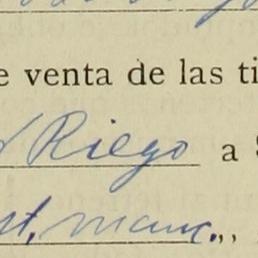 e venta de las ti
Riego a
st, manc.,,